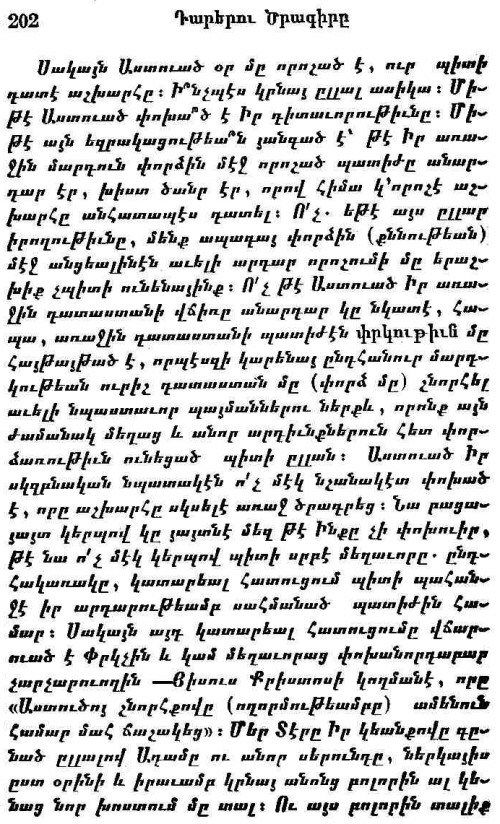 202 Դարերու Ծրագիրը
Սակայն Աստուած օր մը որոշած է, ուր պիտի
դատէ աշխարհը։ Ի՞նչպէս կրնայ ըլլալ ասիկա։ Մի֊
թէ Աստուած փոխա՞ծ է Իր դիտաւորութիւնը։ Մի֊
թէ այն եզրակացութեա՞ն յանգած է՝ թէ Իր առա֊
ջին մարդուն փորձին մէջ որոշած պատիժը անար֊
դար էր, խիստ ծանր էր, որով հիմա կ՚որոշէ աշ֊
խարհը անհատապէս դատել։ Ո՛չ. եթէ այս ըլլար
իրողութիւնը, մենք ապագայ փորձին (քննութեան)
մէջ անցեալինէն աւելի արդար որոշումի մը երաշ֊
խիք չպիտի ունենայինք։ Ո՛չ թէ Աստուած Իր առա֊
ջին դատաստանի վճիռը անարդար կը նկատէ, հա֊
պա, առաջին դատաստանի պատիժէն փրկութիւն մը
հայթայթած է, որպէսզի կարենայ ընդհանուր մարդ֊
կութեան ուրիշ դատաստան մը (փորձ մը) շնորհել
աւելի նպաստաւոր պայմաններու ներքև, որոնք այն
ժամանակ մեղաց և անոր արդիւնքներուն հետ փոր֊
ձառութիւն ունեցած պիտի ըլլան։ Աստուած Իր
սկզբնական նպատակէն ո՛չ մէկ նշանակէտ փոխած
է, որը աշխարհը սկսելէ առաջ ծրագրեց։ Նա բացա֊
յայտ կերպով կը յայտնէ մեզ թէ Ինքը չի փոխուիր,
թէ նա ո՛չ մէկ կերպով պիտի սրբէ մեղաւորը. ընդ֊
հակառակը, կատարեալ հատուցում պիտի պահան֊
ջէ իր արդարութեամբ սահմանած պատիժին հա֊
մար։ Սակայն այդ կատարեալ հատուցումը վճար֊
ուած է Փրկչին և կամ մեղաւորաց փոխանորդաբար
չարչարուողին —Յիսուս Քրիստոսի կողմանէ, որը
«Աստուծոյ շնորհքովը (ողորմութեամբը) ամենուն
համար մահ ճաշակեց»։ Մեր Տէրը Իր կեանքովը գը֊
նած ըլլալով Ադամը ու անոր սերունդը, ներկայիս
ըստ օրինի և իրաւամբ կրնայ անոնց բոլորին ալ կե֊
նաց նոր խոստում մը տալ։ Ու այս բոլորին տալիք